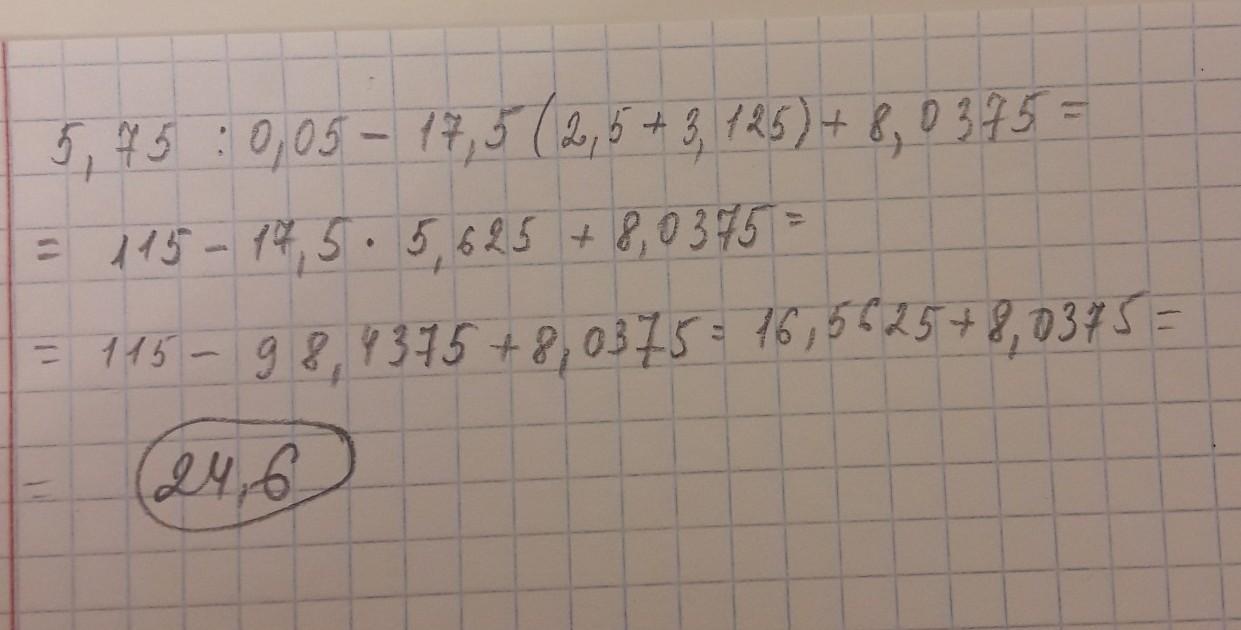 5,75 : 0,05 - 17,5 (2,5 + 3,125) + 8,0375 =
= 115 - 17,5 · 5,625 + 8,0375 =
= 115 - 98,4375 + 8,0375 = 16,5625 + 8,0375 =
= 24,6